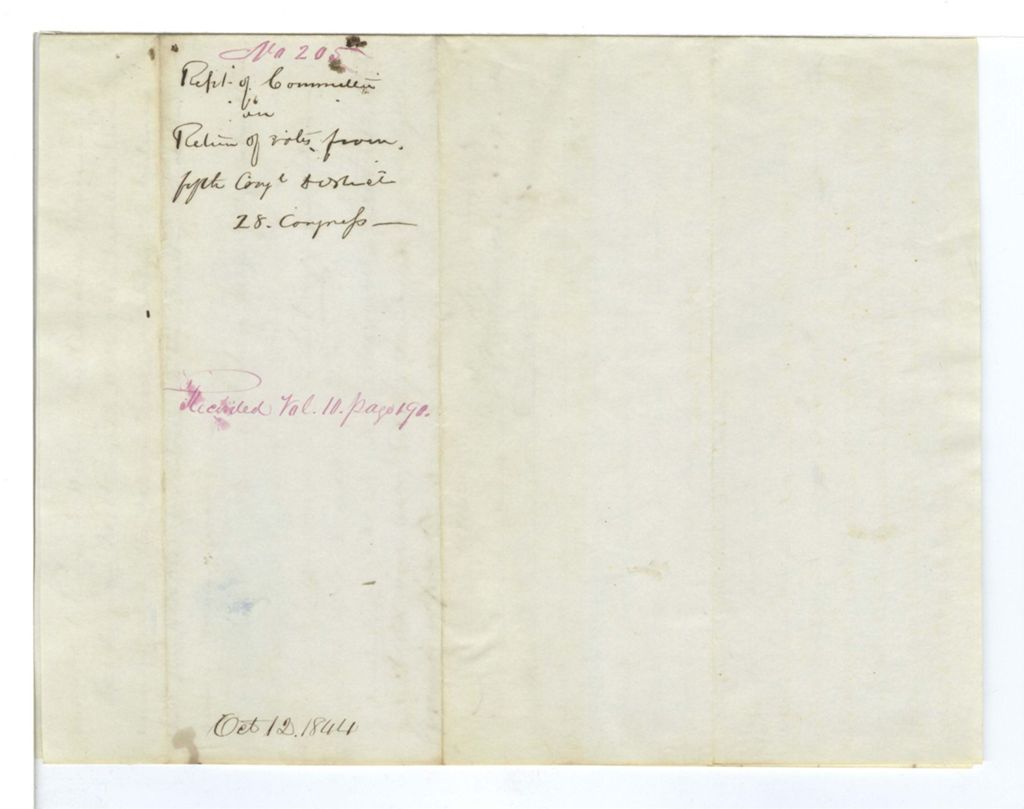 No 205
Rept. of Committee
on
Return of votes from
fifth Congl District
28. Congress —
Recorded Vol. 10. page 190.
Oct 12. 1844